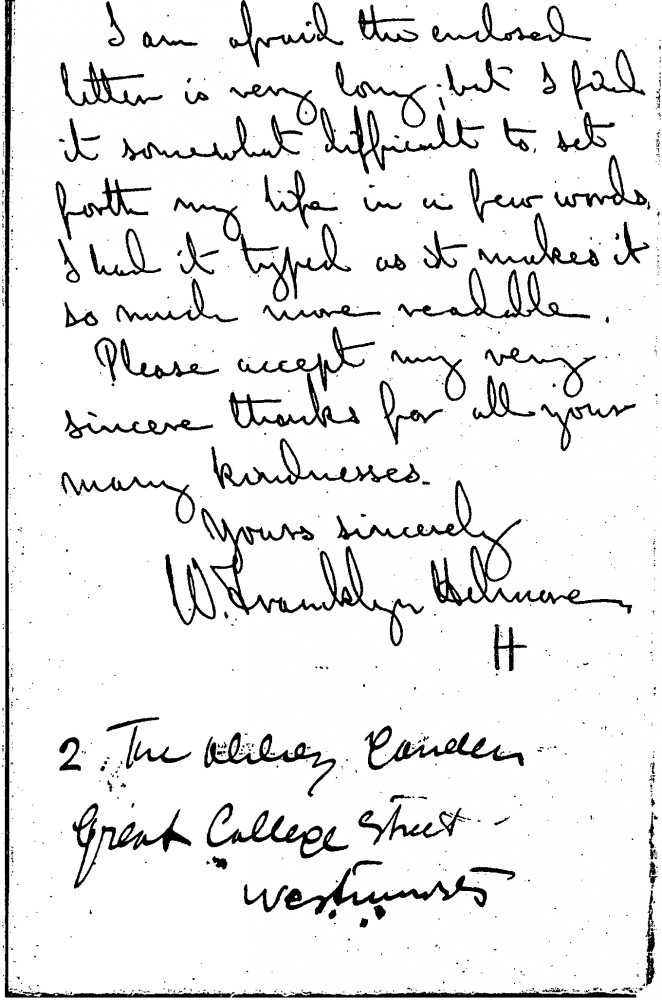 I am afraid the enclosed
letter is very long; but I find
it somewhat difficult to set
forth my life in a few words.
I had it typed as it makes it
so much more readable.
Please accept my very
sincere thanks for all your
many kindnesses.
Yours sincerely
W. Franklyn Helmore
H
2. The Abbey Garden
Great College Street
Westminster